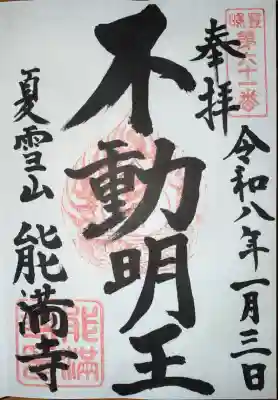 奉拝
第六十一番
令和八年一月三日
不動明王
夏雪山 能満寺